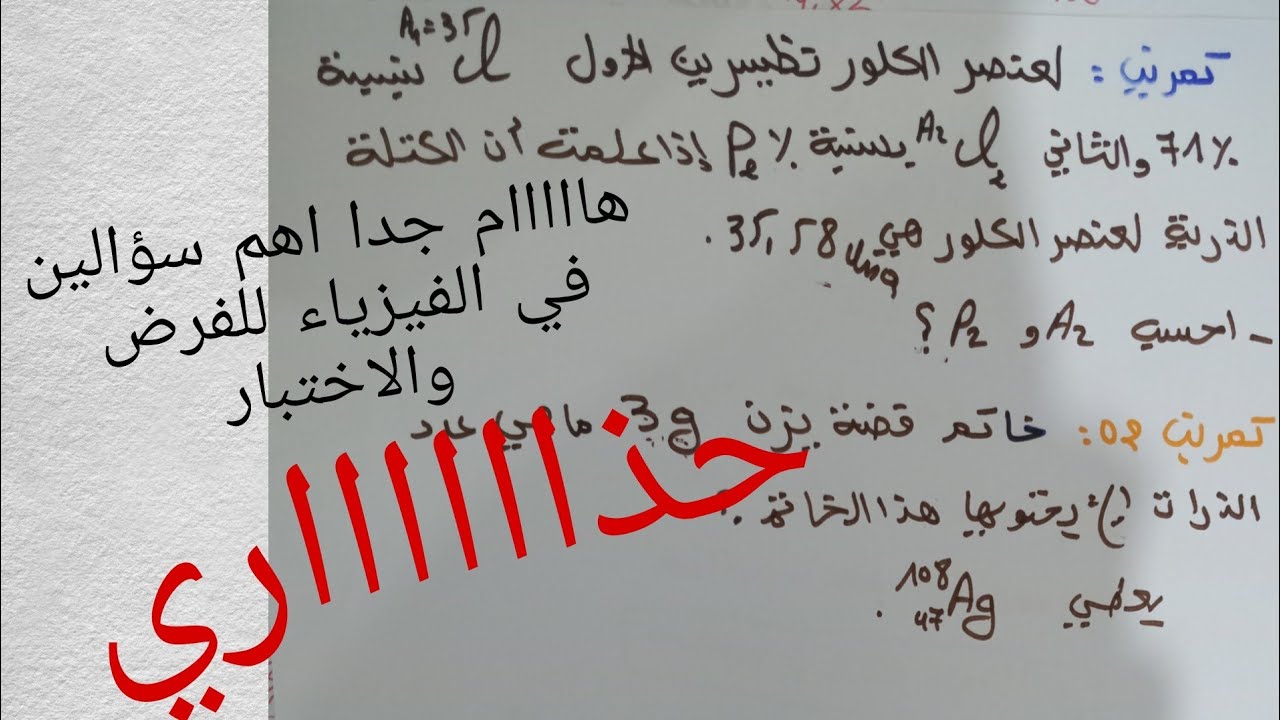 تمرين: لعنصر الكلور نظيرين الأول A₁=35 Cl بنسبة
71٪ والثاني A₂ Cl₂ بنسبة ٪ P₂ إذا علمت أن الكتلة
الذرية لعنصر الكلور هي 35,58 uma.
- احسب A₂ و P₂ ؟
تمرين 02: خاتم فضة يزن 3g ما هي عدد
الذرات التي يحتويها هذا الخاتم؟
يعطي ¹⁰⁸₄₇Ag .
هااااام جدا اهم سؤالين
في الفيزياء للفرض
والاختبار
حذااااااري